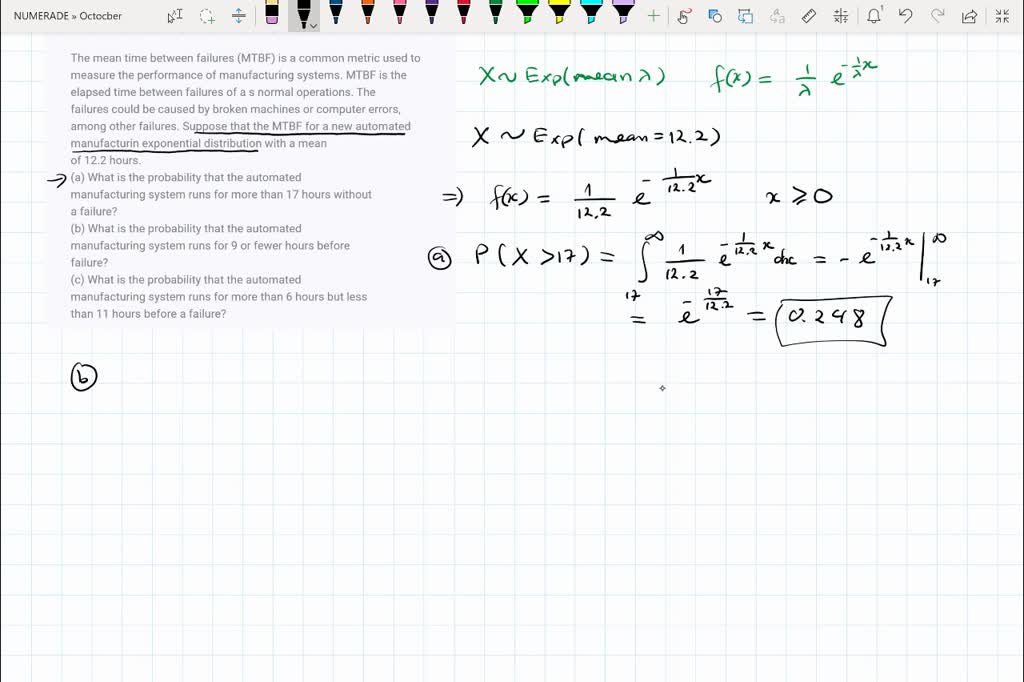 NUMERADE » Octocber
The mean time between failures (MTBF) is a common metric used to
measure the performance of manufacturing systems. MTBF is the
elapsed time between failures of a s normal operations. The
failures could be caused by broken machines or computer errors,
among other failures. Suppose that the MTBF for a new automated
manufacturin exponential distribution with a mean
of 12.2 hours.
(a) What is the probability that the automated
manufacturing system runs for more than 17 hours without
a failure?
(b) What is the probability that the automated
manufacturing system runs for 9 or fewer hours before
failure?
(c) What is the probability that the automated
manufacturing system runs for more than 6 hours but less
than 11 hours before a failure?
X ~ Exp(mean λ) f(x) = 1/λ e^{-1/λ x}
X ~ Exp(mean = 12.2)
=) f(x) = 1/12.2 e^{-1/12.2 x} x ≥ 0
(a) P(X >17) = ∫_{17}^{∞} 1/12.2 e^{-1/12.2 x} dx = -e^{-1/12.2 x} |_{17}^{∞}
= e^{-17/12.2} = 0.248
(b)